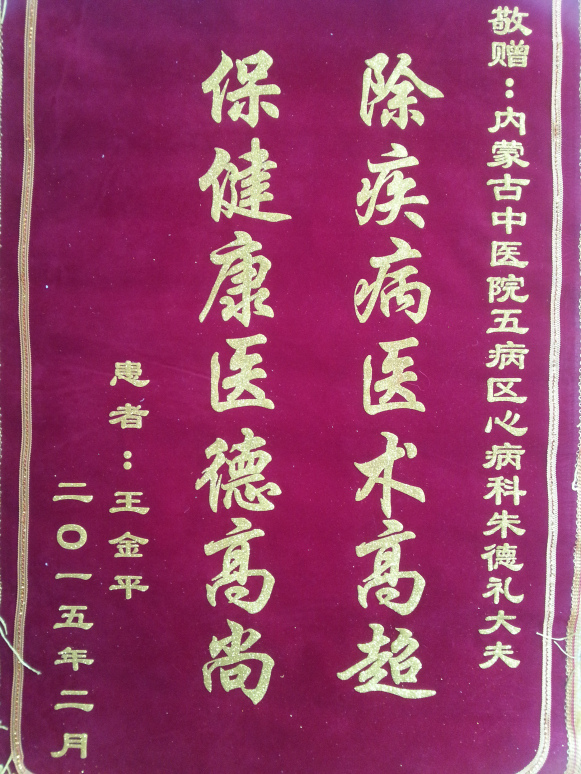 敬赠：内蒙古中医院五病区心病科朱德礼大夫
除疾病医术高超
保健康医德高尚
患者：王金平
二〇一五年二月